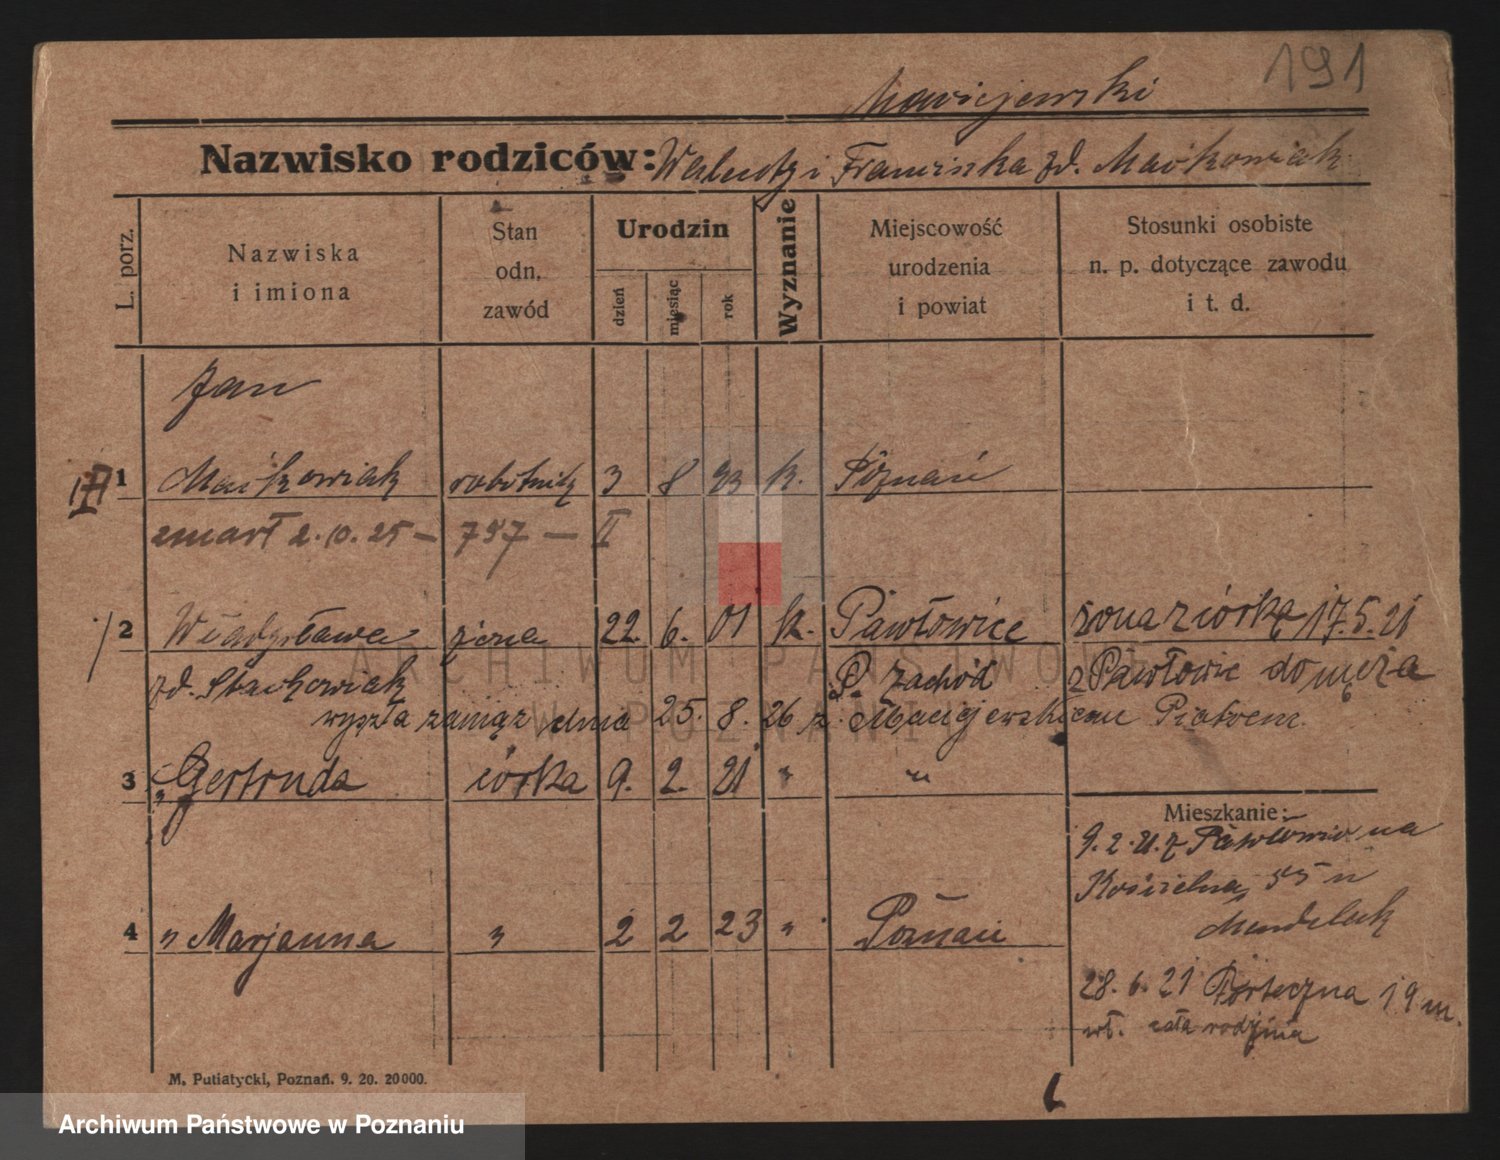 191
Maciejewski
Nazwisko rodziców: i Franciszka zd. Maćkowiak
L. porz.
Nazwiska i imiona
Stan odn. zawód
Urodzin
dzień
miesiąc
rok
Wyznanie
Miejscowość urodzenia i powiat
Stosunki osobiste n. p. dotyczące zawodu i t. d.
Jan
1 Maćkowiak robotnik 3 8 93 k. Poznań
zmarł 2.10.25 – 757 – II
2 Władysława żona 22. 6. 01 k. Pawłowice żona z córką 17.5.21
zd. Stachowiak P. zachód z Pawłowic do męża
wyszła zamąż dnia 25. 8. 26 z Maciejewskiem Piotrem.
3 " Gertruda córka 9. 2. 21 " "
Mieszkanie:
9.2.21. z Pawłowic na
Kościelną 55 u
4 " Marjanna " 2 2 23 " Poznań
28. 6. 21 Forteczna 19 m.
wł. cała rodzina
M. Putiatycki, Poznań. 9. 20. 20000.
ARCHIWUM PAŃSTWOWE
W POZNANIU
Archiwum Państwowe w Poznaniu